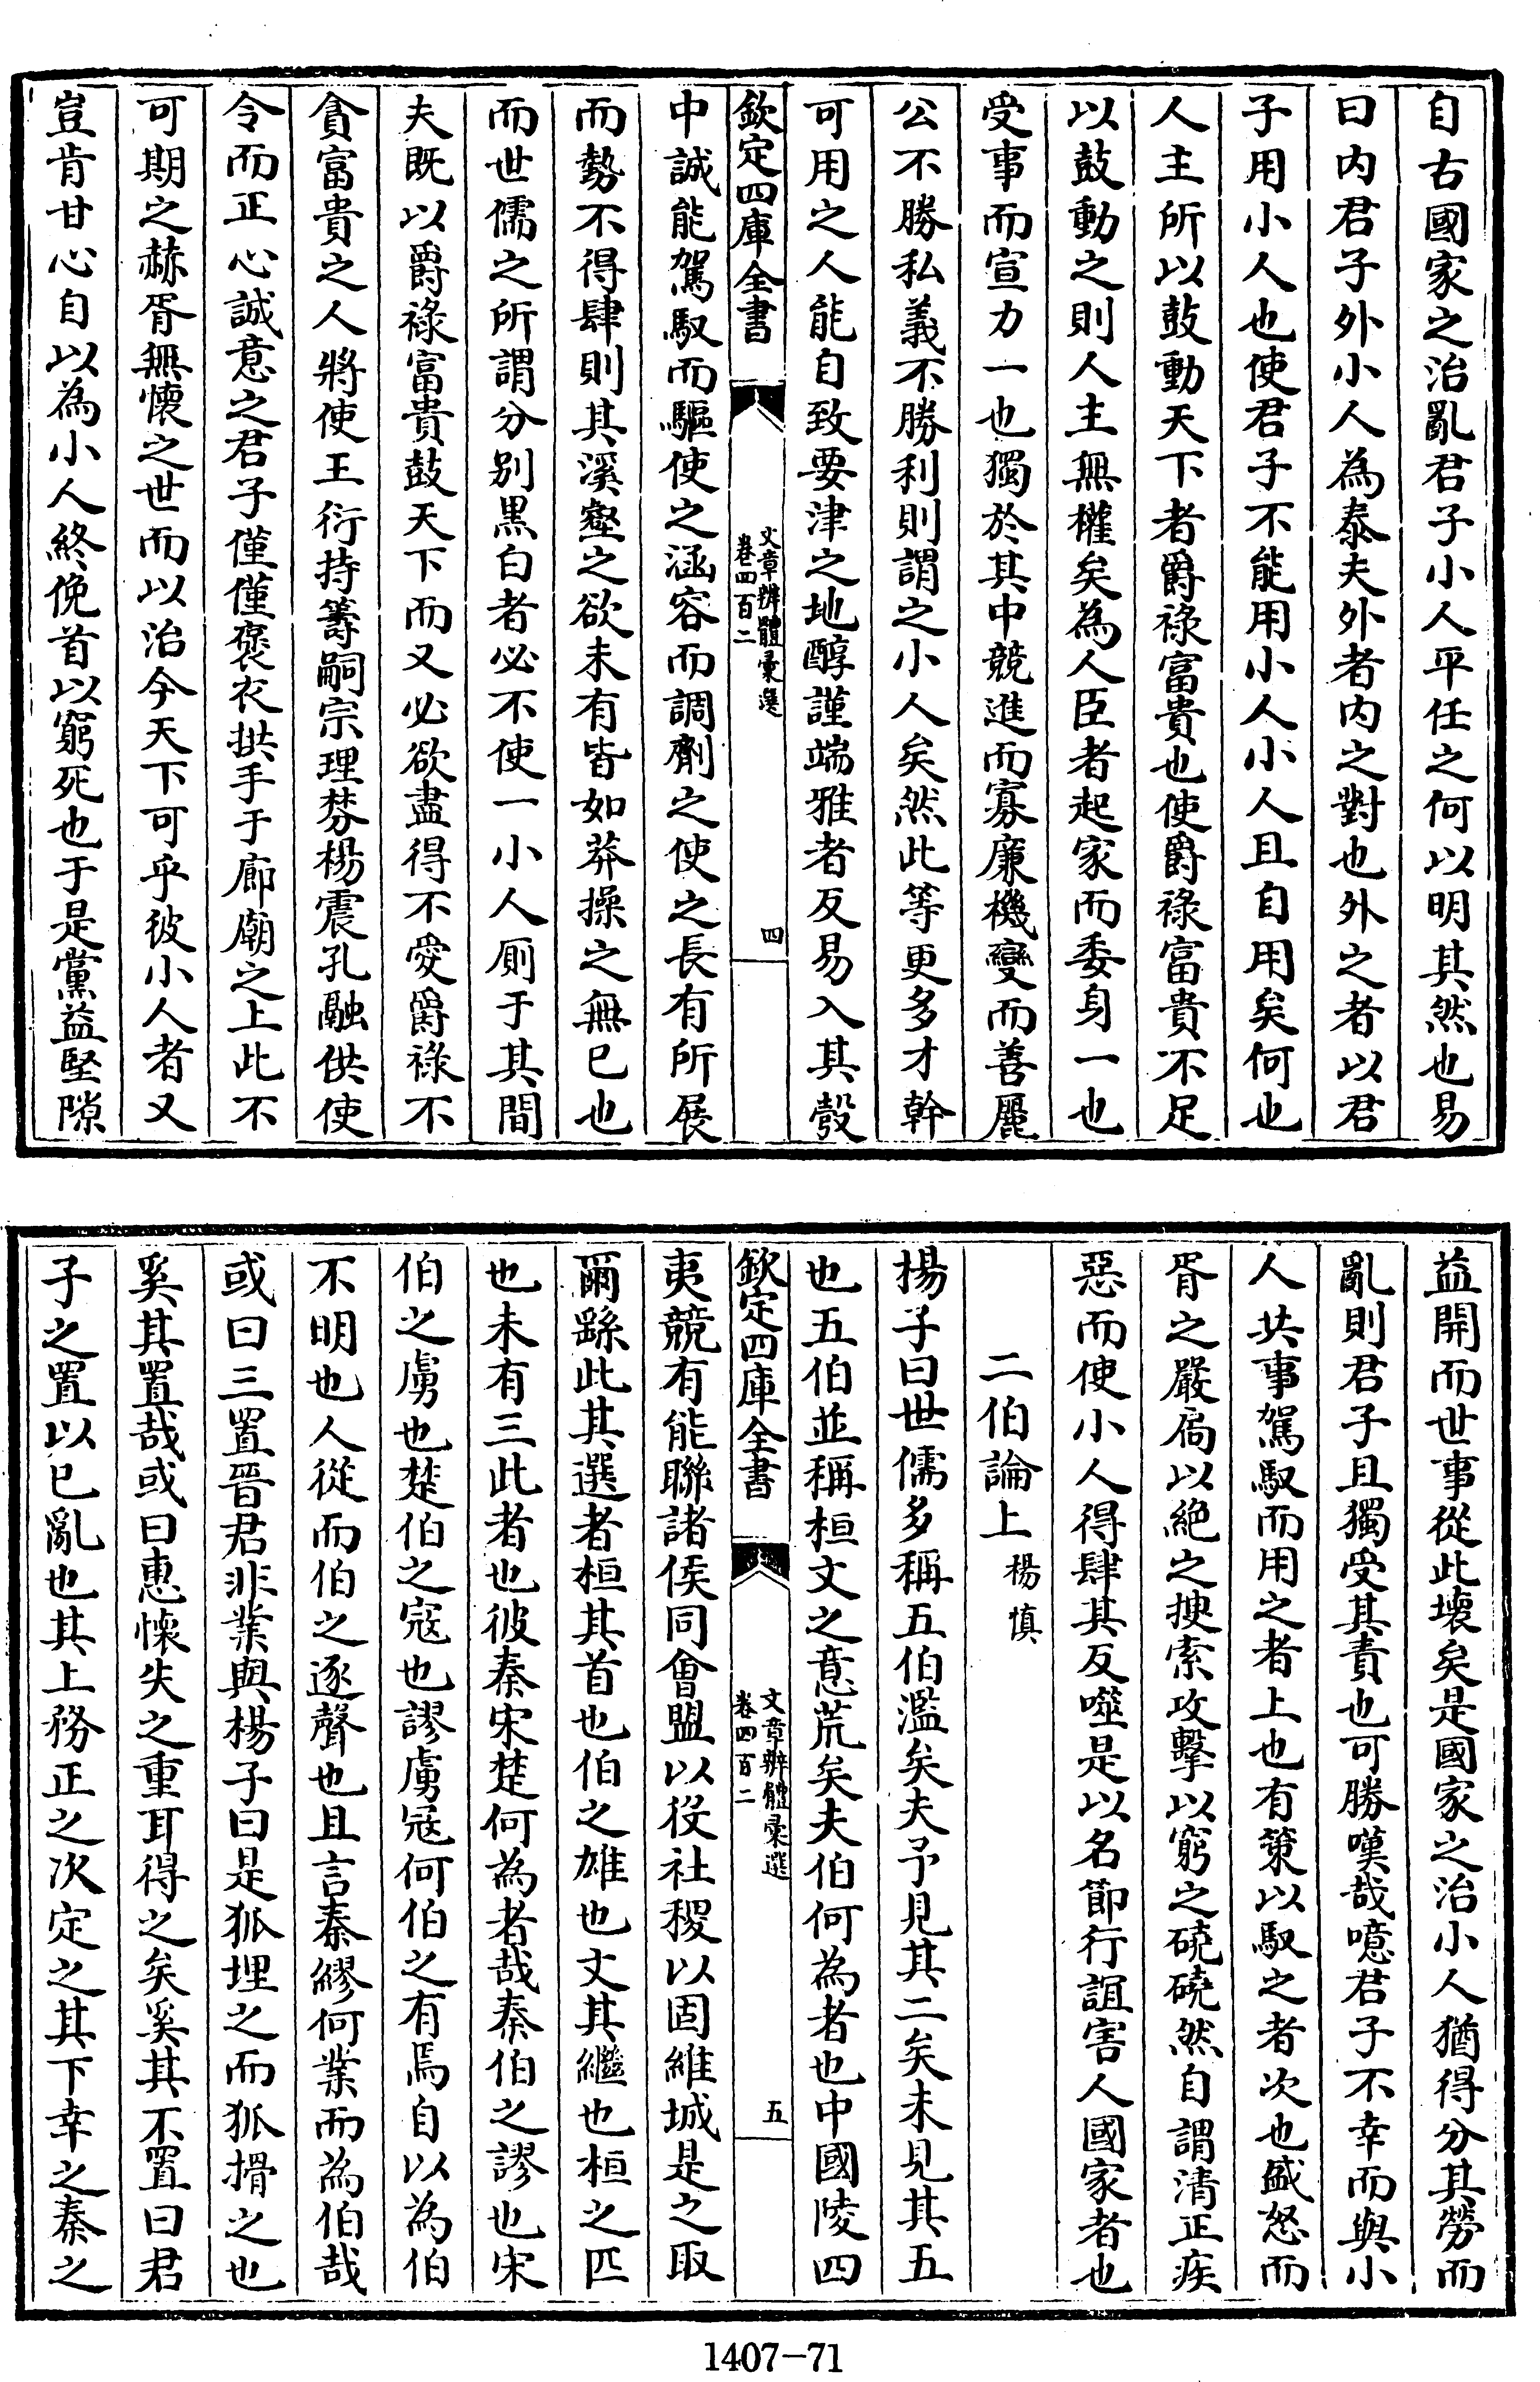 自古國家之治亂君子小人平任之何以明其然也易
曰内君子外小人為泰夫外者内之對也外之者以君
子用小人也使君子不能用小人小人且自用矣何也
人主所以鼓動天下者爵祿富貴也使爵祿富貴不足
以鼓動之則人主無權矣為人臣者起家而委身一也
受事而宣力一也獨於其中競進而寡廉機變而善麗
公不勝私義不勝利則謂之小人矣然此等更多才幹
可用之人能自致要津之地醇謹端雅者反易入其彀
欽定四庫全書
文章辨體彚選
卷四百二
四
中誠能駕馭而驅使之涵容而調劑之使之長有所展
而勢不得肆則其溪壑之欲未有皆如莽操之無已也
而世儒之所謂分别黒白者必不使一小人厠于其間
夫既以爵祿富貴鼓天下而又必欲盡得不愛爵祿不
貪富貴之人將使王衍持籌嗣宗理棼楊震孔融供使
令而正心誠意之君子僅僅褒衣拱手于廊廟之上此不
可期之赫胥無懐之世而以治今天下可乎彼小人者又
豈肯甘心自以為小人終俛首以窮死也于是黨益堅隙
益開而世事從此壞矣是國家之治小人猶得分其勞而
亂則君子且獨受其責也可勝嘆哉噫君子不幸而與小
人共事駕馭而用之者上也有策以馭之者次也盛怒而
胥之嚴扄以絶之㨂索攻擊以窮之硗硗然自謂清正疾
惡而使小人得肆其反噬是以名節行誼害人國家者也
二伯論上 楊慎
揚子曰世儒多稱五伯濫矣夫予見其二矣未見其五
也五伯並稱桓文之意荒矣夫伯何為者也中國陵四
欽定四庫全書
文章辨體彚選
卷四百二
五
夷競有能聯諸侯同會盟以役社稷以固維城是之取
爾繇此其選者桓其首也伯之雄也文其繼也桓之匹
也未有三此者也彼秦宋楚何為者哉秦伯之謬也宋
伯之虜也楚伯之寇也謬虜寇何伯之有焉自以為伯
不明也人從而伯之逐聲也且言秦繆何業而為伯哉
或曰三置晉君非業與楊子曰是狐埋之而狐搰之也
奚其置哉或曰惠懐失之重耳得之矣奚其不置曰君
子之置以已亂也其上務正之次定之其下幸之秦之
1407-71